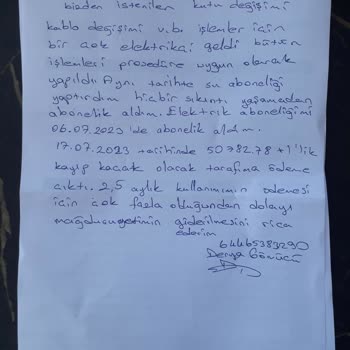 bizden istenilen kutu değişimi
kablo değişimi v.b. işlemler için
bir çok elektrikçi geldi bütün
işlemleri prosedüre uygun olarak
yapıldı. Aynı tarihte su aboneliği
yaptırdım hiçbir sıkıntı yaşamadan
abonelik aldım. Elektrik aboneliğimi
06.07.2023'de abonelik aldım.
17.07.2023 tarihinde 50782.78 tl'lik
kayıp kaçak olarak tarafıma ödeme
çıktı. 2,5 aylık kullanımımın ödemesi
için çok fazla olduğundan dolayı
mağduriyetimin giderilmesini rica
ederim
64465383290
Derya